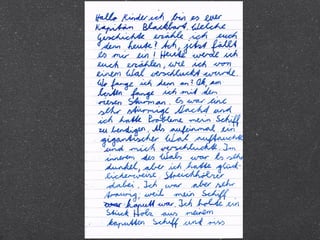 Hallo Kinder ich bin es euer
Kapitän Blackbard. Welche
Geschichte erzähle ich euch
den heute? Ach, jetzt fällt
es mir ein! Heute werde ich
euch erzählen, wie ich von
einem Wal verschluckt wurde.
Wo fange ich den an? Ok, am
besten fange ich mit den
riesen Sturm an. Es war eine
sehr stürmige Nacht und
ich hatte Probleme mein Schiff
zu bendigen. Als aufeinmal ein
gigantischer Wal auftauchte
und mich verschluckte. Im
inneren des Wals war es sehr
dunkel, aber ich hatte glück-
licherweise Streichhölzer
dabei. Ich war aber sehr
traurig, weil mein Schiff
kaputt war. Ich holte ein
Stück Holz aus meinem
kaputten Schiff und